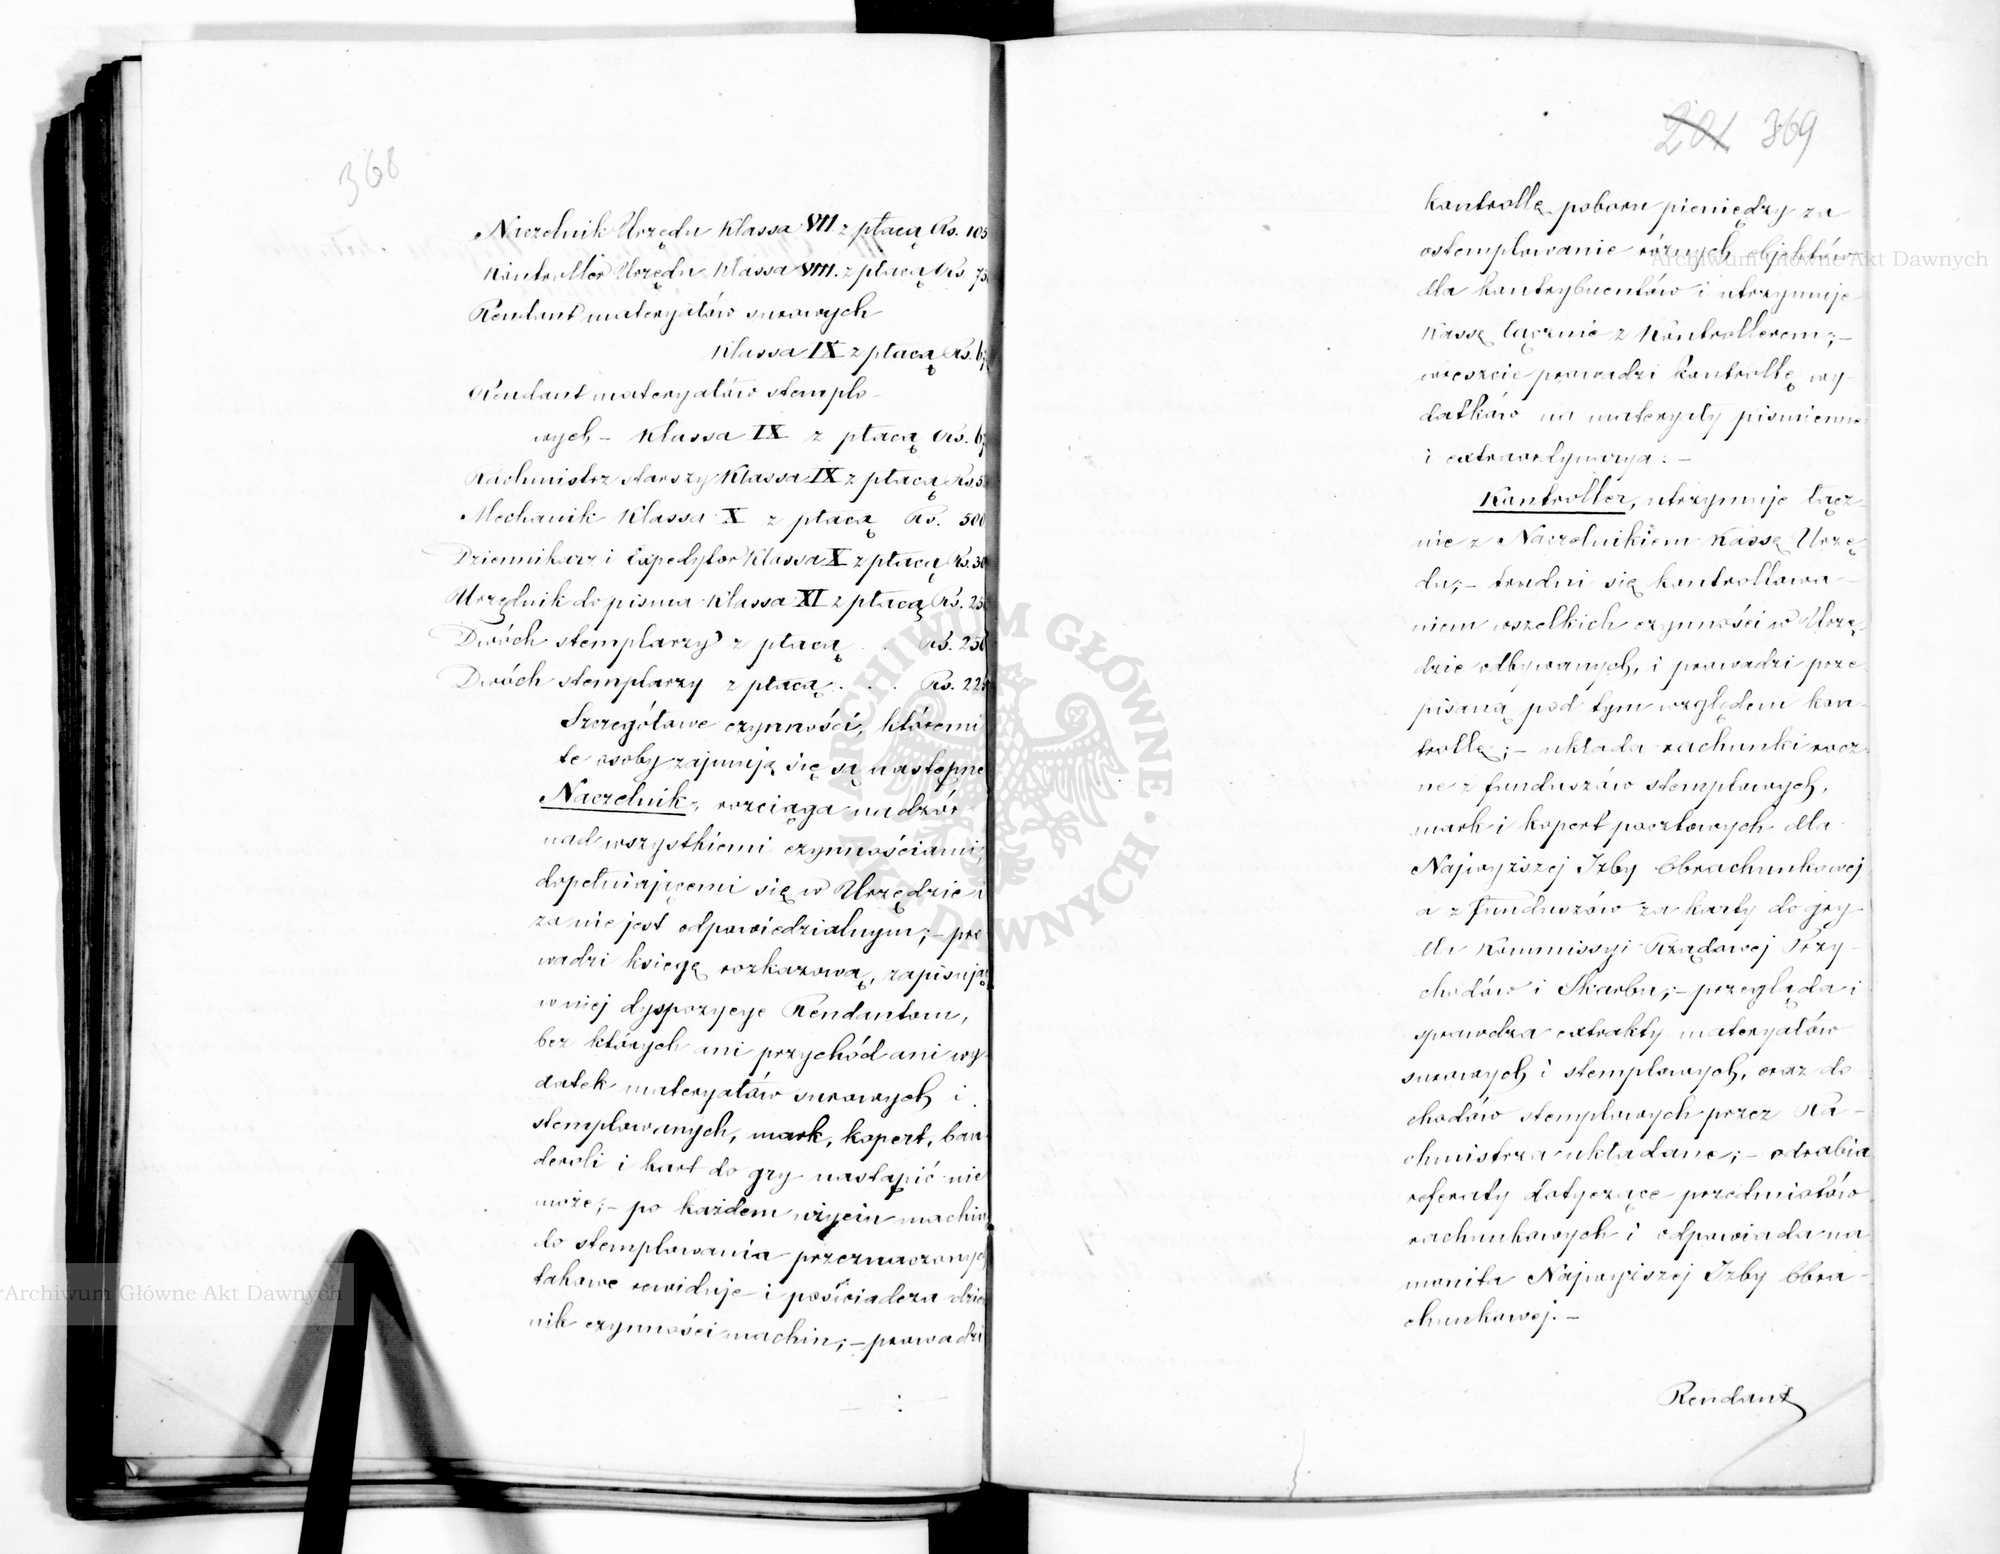 368
Naczelnik Urzędu Klassa VII z płacą Rs. 105
Kontroller Urzędu Klassa VIII. z płacą Rs 75
Rendant materyałów surowych
Klassa IX z płacą Rs. 6
Rendant materyałów stemplo-
wych – Klassa IX z płacą Rs. 6
Rachmistrz starszy Klassa IX z płacą Rs. 5
Mechanik Klassa X z płacą Rs. 500
Dziennikarz i Expedytor Klassa X z płacą Rs. 30
Urzędnik do pisma Klassa XI z płacą Rs. 25
Dwóch stemplarzy z płacą . . Rs. 250
Dwóch stemplarzy z płacą . . . Rs. 225
Szczegółowe czynności, któremi
te osoby zajmują się są następne
Naczelnik, rozciąga nadzór
nad wszystkiemi czynnościami,
dopełniającemi się w Urzędzie i
za nie jest odpowiedzialnym; – pro
wadzi księgę rozkazową, zapisując
w niej dyspozycye Rendantom,
bez których ani przychód ani wy-
datek materyałów surowych i
stemplowanych, mark, kopert, ban
deroli i kart do gry nastąpić nie
może; – po każdem użyciu machin
do stemplowania przeznaczonych
takowe rewiduje i poświadcza dzien
nik czynności machin; – prowadzi
201 369
kontrollę poboru pieniędzy za
ostemplowanie różnych objektów
dla kontrybuentów i utrzymuje
Kassę łącznie z Kontrollerem; –
wreszcie prowadzi kontrollę wy-
datków na materyały piśmienne
i extraordynarya. –
Kontroller, utrzymuje łącz-
nie z Naczelnikiem Kassę Urzę-
du; – trudni się kontrollowa-
niem wszelkich czynności w Urzę-
dzie odbywanych, i prowadzi prze
pisaną pod tym względem kon-
trollę; – układa rachunki rocz-
ne z funduszów stemplowych,
mark i kopert pocztowych dla
Najwyższej Izby Obrachunkowej
a z funduszów za karty do gry
dla Kommissyi Rządowej Przy-
chodów i Skarbu; – przegląda i
sprawdza extrakty materyałów
surowych i stemplowych, oraz do
chodów stemplowych przez Ra-
chmistrza układane; – odrabia
referaty dotyczące przedmiotów
rachunkowych i odpowiada na
monita Najwyższej Izby Obra-
chunkowej. –
Rendant
Archiwum Główne Akt Dawnych
Archiwum Główne Akt Dawnych
ARCHIWUM GŁÓWNE AKT DAWNYCH